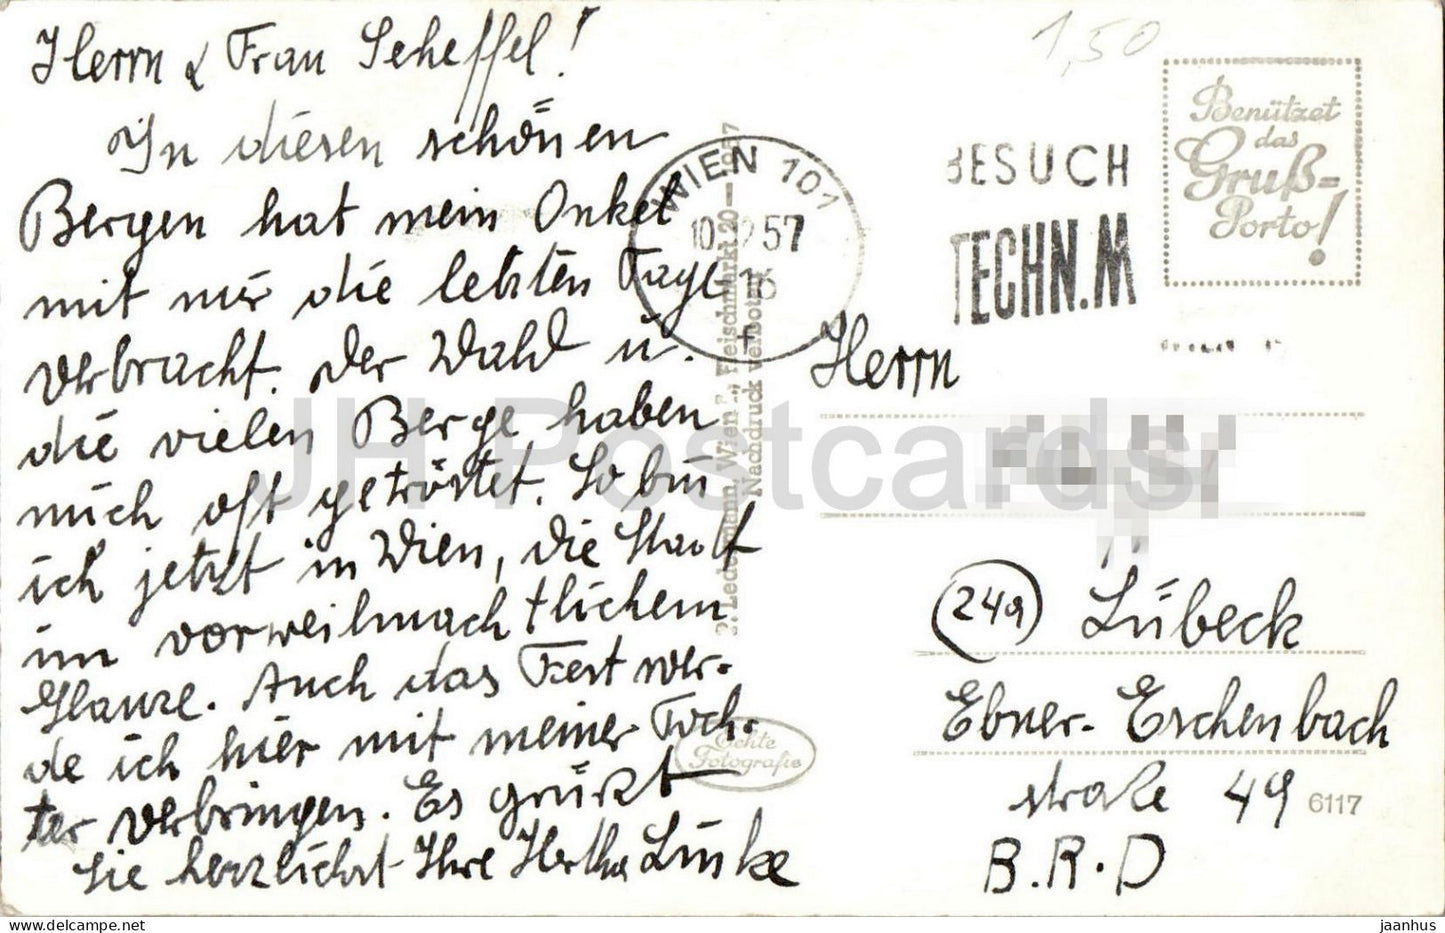 Herrn & Frau Scheffel!
In diesen schönen
Bergen hat mein Onkel
mit mir die letzten Tage
verbracht. Der Wald u.
die vielen Berge haben
mich oft getröstet. So bin
ich jetzt in Wien, die Stadt
im vorweihnachtlichem
Glanze. Auch das Fest wer-
de ich hier mit meiner Toch-
ter verbringen. Es grüßt
Sie herzlichst Ihre Hertha Linke
P. Ledermann, Wien I., Fleischmarkt 20 — 1957
Nachdruck verboten
Echte
Fotografie
WIEN 101
10. 57
16
+
BESUCH
TECHN. M
1,50
Benützet
das
Gruß-
Porto!
Herrn
24a Lübeck
Ebner-Eschenbach
straße 49
6117
B.R.D
JH Postcards
jaanhus